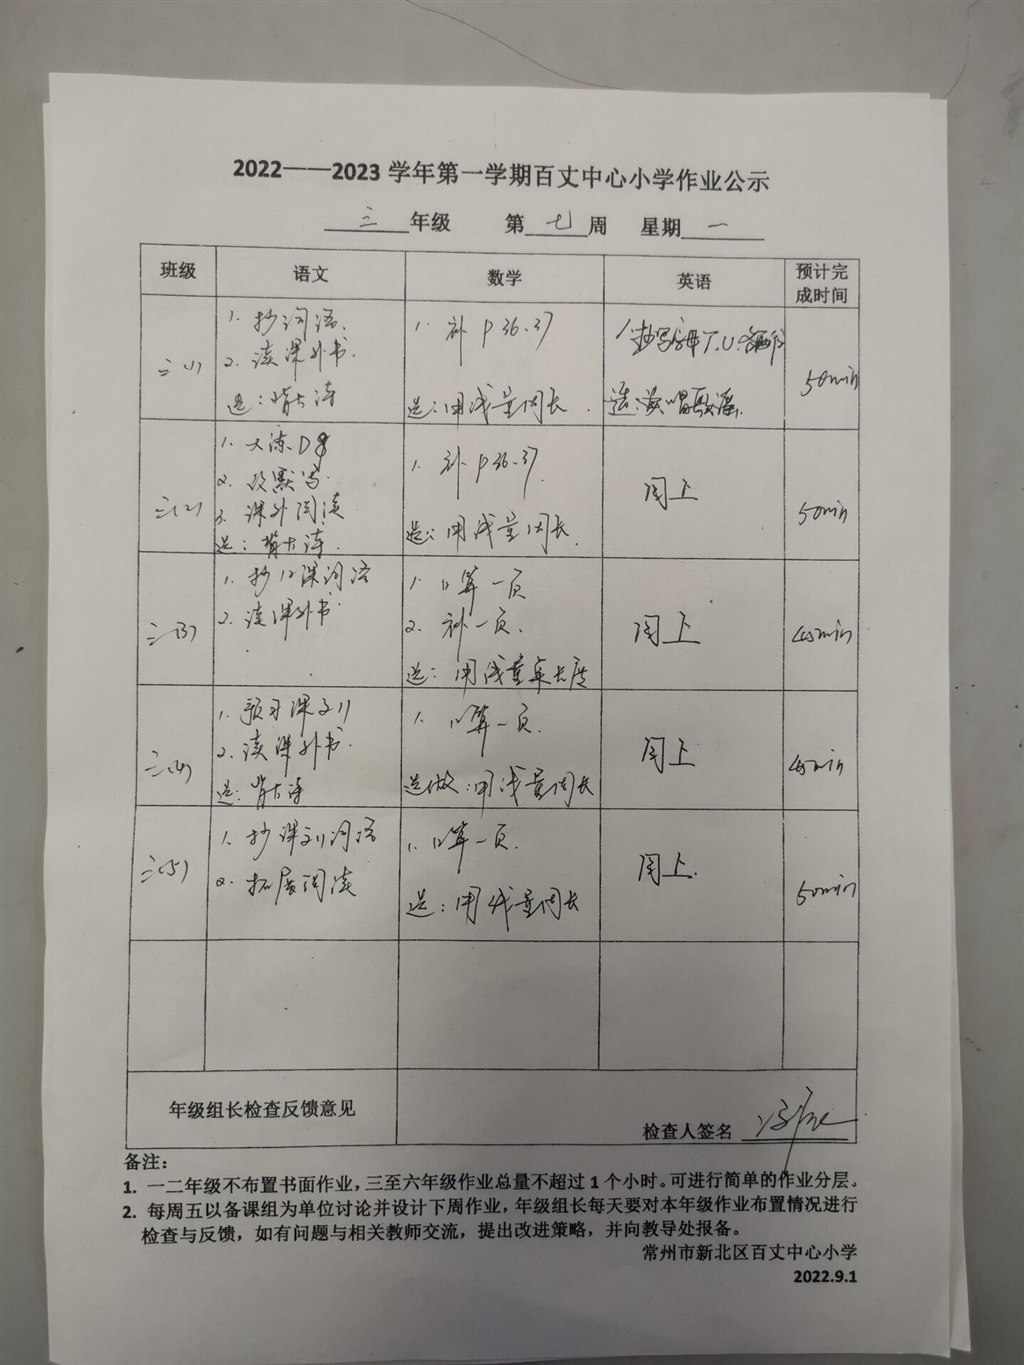 2022——2023 学年第一学期百丈中心小学作业公示
三 年级 第 七 周 星期 一
班级 语文 数学 英语 预计完成时间
三(1)
1. 抄词语.
2. 读课外书.
选：背古诗
1. 补 P36.37
选：用线量周长.
1.抄写字母T.U.
选：读唱歌谣.
50min
三(2)
1. 大练D8
2. 默写.
3. 课外阅读
选：背古诗.
1. 补 P36.37.
选：用线量周长.
同上
50min
三(3)
1. 抄12课词语
2. 读课外书.
1. 口算一页
2. 补一页.
选：用线量桌长度
同上
45min
三(4)
1. 预习课文11
2. 读课外书.
选：背古诗
1. 口算一页.
选做：用线量周长
同上
45min
三(5)
1. 抄课文11词语
2. 拓展阅读
1. 口算一页.
选：用线量周长
同上.
50min
年级组长检查反馈意见
检查人签名
备注：
1. 一二年级不布置书面作业，三至六年级作业总量不超过 1 个小时。可进行简单的作业分层。
2. 每周五以备课组为单位讨论并设计下周作业，年级组长每天要对本年级作业布置情况进行
检查与反馈，如有问题与相关教师交流，提出改进策略，并向教导处报备。
常州市新北区百丈中心小学
2022.9.1